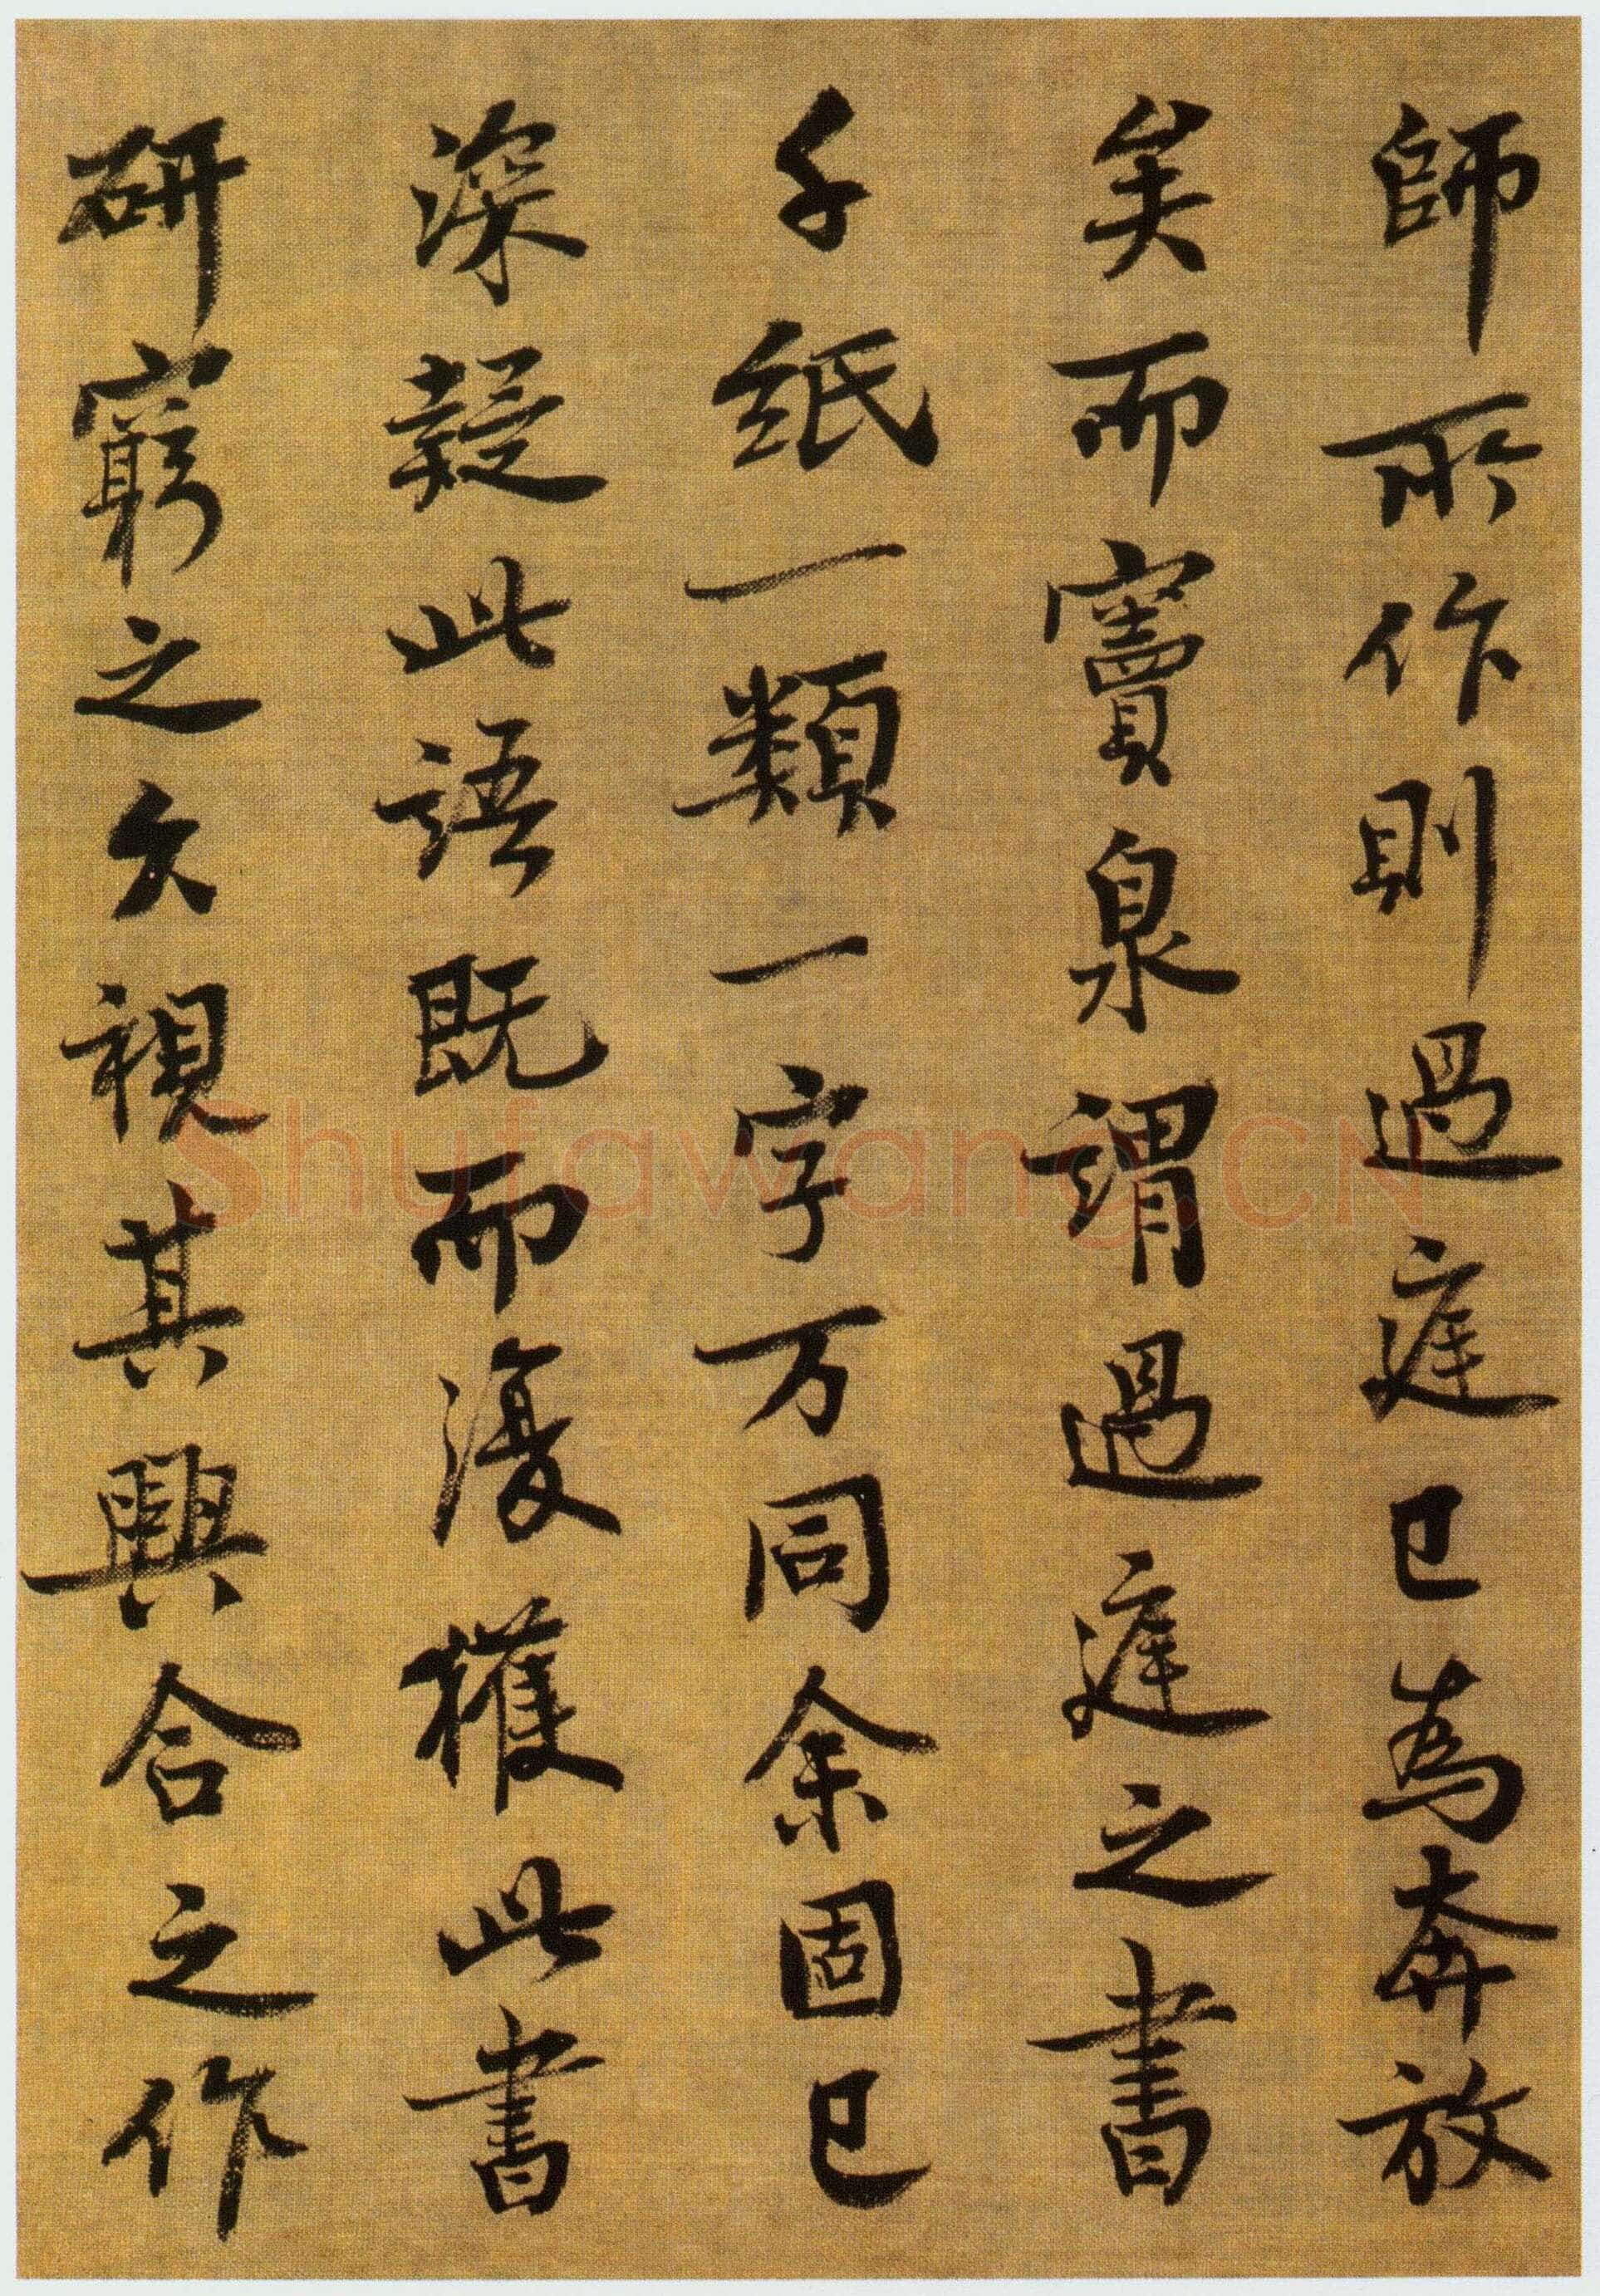 師所作則過庭已為奔放
矣而竇泉謂過庭之書
千紙一類一字万同余固已
深疑此語既而復獲此書
研窮之久視其興合之作
Shufawang.CN